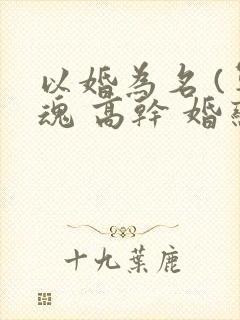 以婚為名(
魂 高幹 婚
十九葉鹿